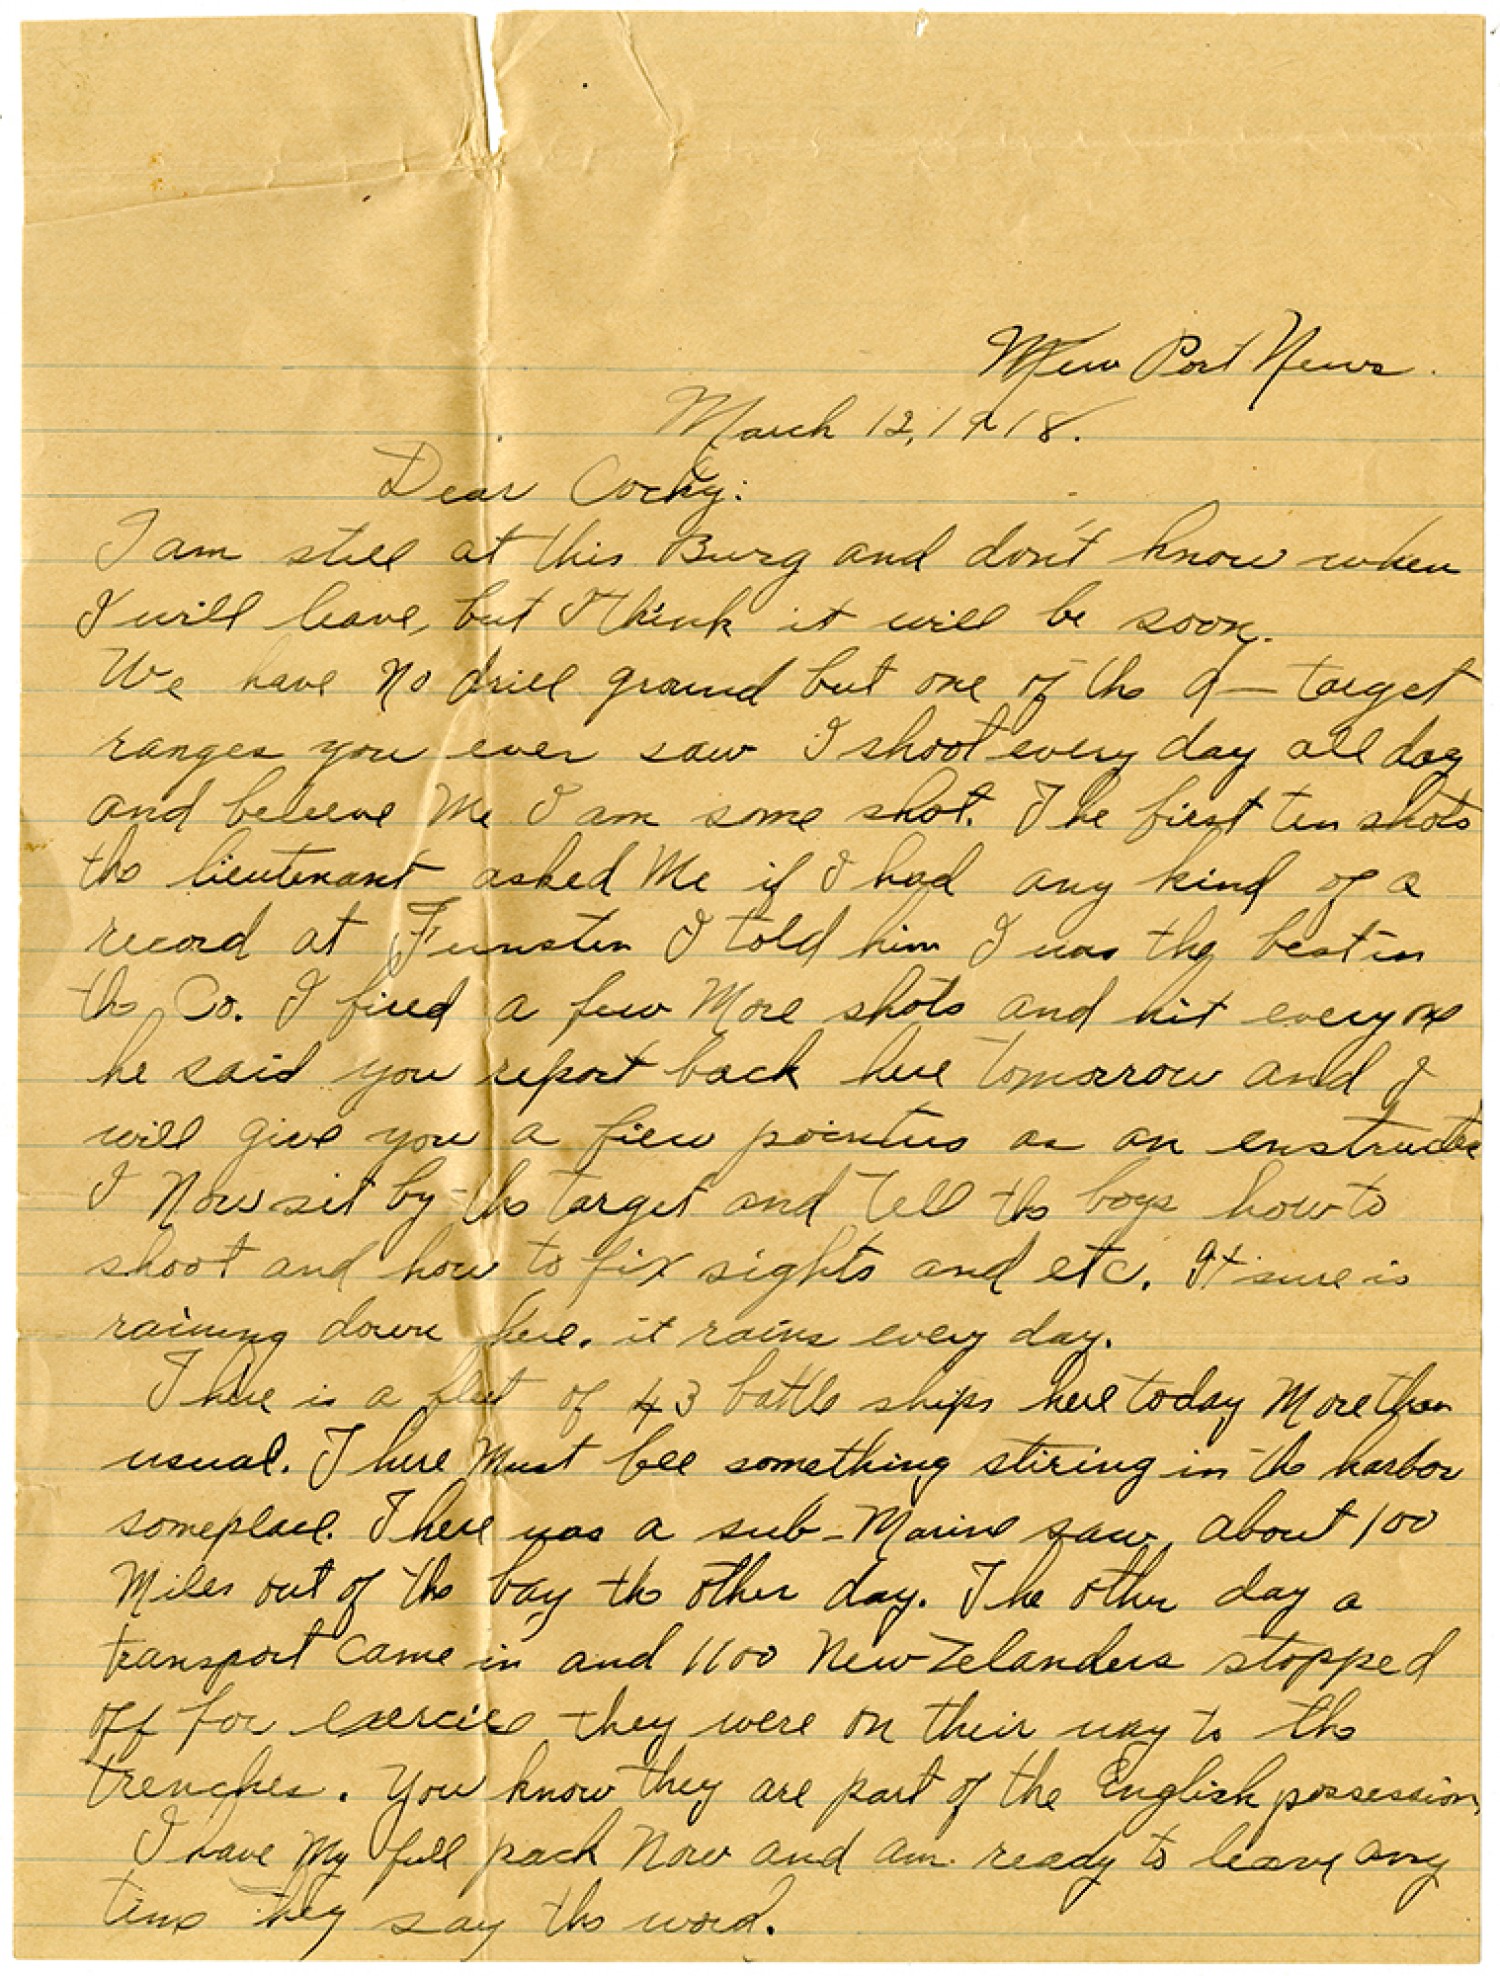 New Port News.
March 12, 1918.
Dear Cocky:
I am still at this Burg and don't know when
I will leave, but I think it will be soon.
We have no drill ground but one of the d— target
ranges you ever saw I shoot every day all day
and beleeve Me I am some shot. The first ten shots
the lieutenant asked Me if I had any kind of a
record at Funsten I told him I was the best in
the Co. I fired a few More shots and hit every one
he said you report back here tomorrow and I
will give you a fiew pointers as an enstructer
I Now sit by the target and tell the boys how to
shoot and how to fix sights and etc. It sure is
raining down here. it rains every day.
There is a fleet of 43 battle ships here today More than
usual. There Must bee something stiring in the harbor
someplace. There was a sub-Marine saw about 100
Miles out of the bay the other day. The other day a
transport came in and 1100 New Zelanders stopped
off for exercise they were on their way to the
trenches. You know they are part of the English possession.
I have My full pack Now and am ready to leave any
time they say the word.